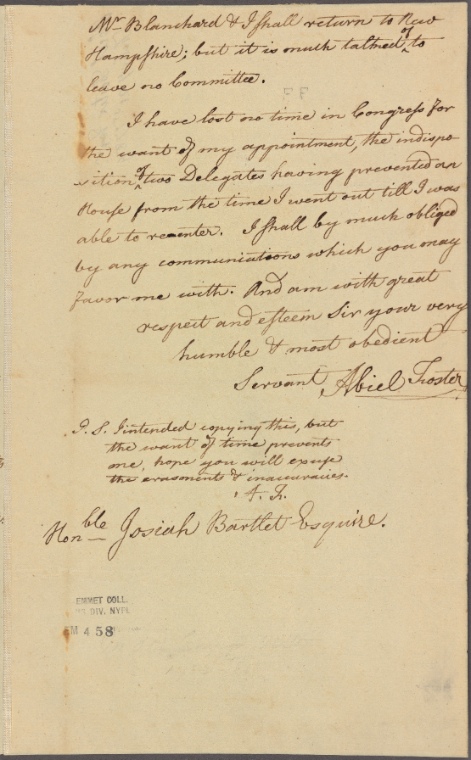 Mr. Blanchard & I shall return to New
Hampshire; but it is much talked of, to
leave no Committee.
I have lost no time in Congress for
the want of my appointment, the indispo
sition of two Delegates having prevented an
House from the time I went out till I was
able to reenter. I shall by much obliged
by any communications which you may
favor me with. And am with great
respect and esteem Sir your very
humble & most obedient
Servant, Abiel Foster
P. S. I intended copying this, but
the want of time prevents
me, hope you will excuse
the erasments & inaccuracies.
A. F.
Honble Josiah Bartlet Esquire.
EMMET COLL.
DIV. NYPL
EM 458